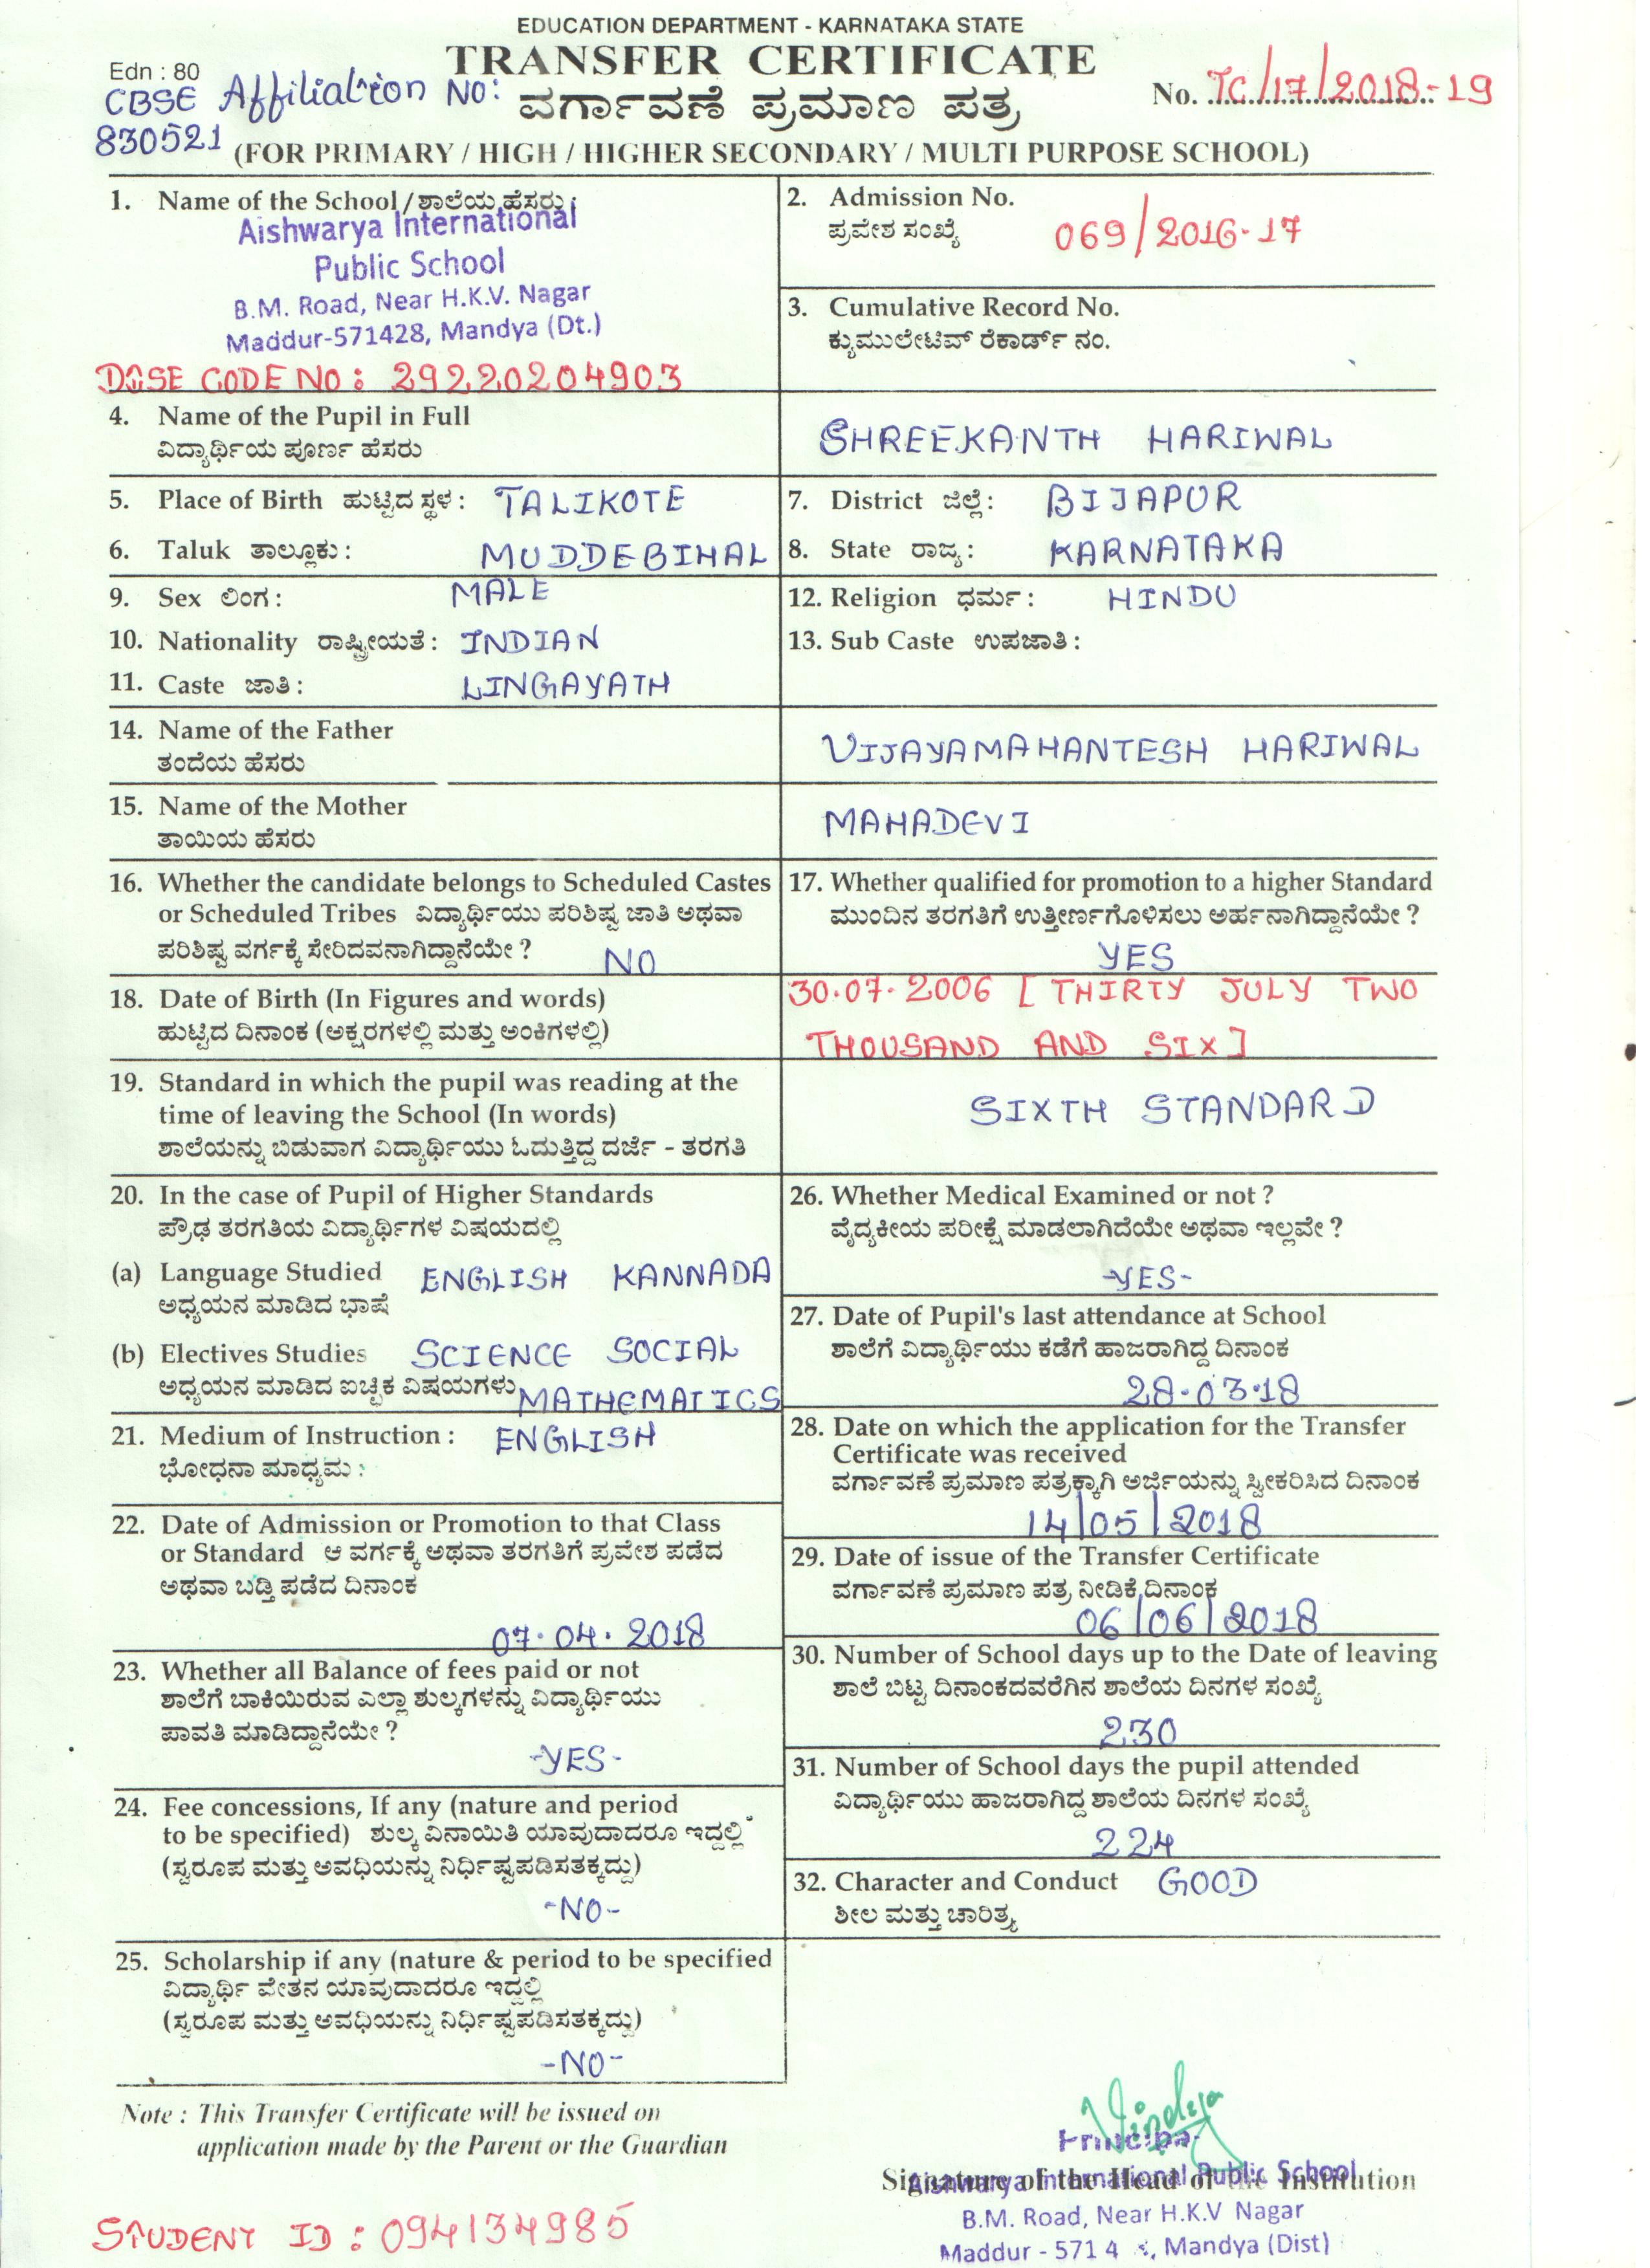 EDUCATION DEPARTMENT - KARNATAKA STATE
TRANSFER CERTIFICATE
Edn : 80
CBSE Affiliation No:
830521
ವರ್ಗಾವಣೆ ಪ್ರಮಾಣ ಪತ್ರ
No. TC/17/2018-19
(FOR PRIMARY / HIGH / HIGHER SECONDARY / MULTI PURPOSE SCHOOL)
1. Name of the School/ಶಾಲೆಯ ಹೆಸರು :
Aishwarya International
Public School
B.M. Road, Near H.K.V. Nagar
Maddur-571428, Mandya (Dt.)
DISE CODE NO: 29220204903
2. Admission No.
ಪ್ರವೇಶ ಸಂಖ್ಯೆ 069/2016-17
3. Cumulative Record No.
ಕ್ಯುಮುಲೇಟಿವ್ ರೆಕಾರ್ಡ್ ನಂ.
4. Name of the Pupil in Full
ವಿದ್ಯಾರ್ಥಿಯ ಪೂರ್ಣ ಹೆಸರು
SHREEKANTH HARIWAL
5. Place of Birth ಹುಟ್ಟಿದ ಸ್ಥಳ : TALIKOTE
6. Taluk ತಾಲ್ಲೂಕು : MUDDEBIHAL
7. District ಜಿಲ್ಲೆ : BIJAPUR
8. State ರಾಜ್ಯ : KARNATAKA
9. Sex ಲಿಂಗ : MALE
10. Nationality ರಾಷ್ಟ್ರೀಯತೆ : INDIAN
11. Caste ಜಾತಿ : LINGAYATH
12. Religion ಧರ್ಮ : HINDU
13. Sub Caste ಉಪಜಾತಿ :
14. Name of the Father
ತಂದೆಯ ಹೆಸರು
VIJAYAMAHANTESH HARIWAL
15. Name of the Mother
ತಾಯಿಯ ಹೆಸರು
MAHADEVI
16. Whether the candidate belongs to Scheduled Castes
or Scheduled Tribes ವಿದ್ಯಾರ್ಥಿಯು ಪರಿಶಿಷ್ಟ ಜಾತಿ ಅಥವಾ
ಪರಿಶಿಷ್ಟ ವರ್ಗಕ್ಕೆ ಸೇರಿದವನಾಗಿದ್ದಾನೆಯೇ ? NO
17. Whether qualified for promotion to a higher Standard
ಮುಂದಿನ ತರಗತಿಗೆ ಉತ್ತೀರ್ಣಗೊಳಿಸಲು ಅರ್ಹನಾಗಿದ್ದಾನೆಯೇ ?
YES
18. Date of Birth (In Figures and words)
ಹುಟ್ಟಿದ ದಿನಾಂಕ (ಅಕ್ಷರಗಳಲ್ಲಿ ಮತ್ತು ಅಂಕಿಗಳಲ್ಲಿ)
30.07.2006 [ THIRTY JULY TWO
THOUSAND AND SIX ]
19. Standard in which the pupil was reading at the
time of leaving the School (In words)
ಶಾಲೆಯನ್ನು ಬಿಡುವಾಗ ವಿದ್ಯಾರ್ಥಿಯು ಓದುತ್ತಿದ್ದ ದರ್ಜೆ - ತರಗತಿ
SIXTH STANDARD
20. In the case of Pupil of Higher Standards
ಪ್ರೌಢ ತರಗತಿಯ ವಿದ್ಯಾರ್ಥಿಗಳ ವಿಷಯದಲ್ಲಿ
(a) Language Studied ENGLISH KANNADA
ಅಧ್ಯಯನ ಮಾಡಿದ ಭಾಷೆ
(b) Electives Studies SCIENCE SOCIAL
ಅಧ್ಯಯನ ಮಾಡಿದ ಐಚ್ಛಿಕ ವಿಷಯಗಳು MATHEMATICS
21. Medium of Instruction : ENGLISH
ಭೋಧನಾ ಮಾಧ್ಯಮ :
22. Date of Admission or Promotion to that Class
or Standard ಆ ವರ್ಗಕ್ಕೆ ಅಥವಾ ತರಗತಿಗೆ ಪ್ರವೇಶ ಪಡೆದ
ಅಥವಾ ಬಡ್ತಿ ಪಡೆದ ದಿನಾಂಕ
07.04.2018
23. Whether all Balance of fees paid or not
ಶಾಲೆಗೆ ಬಾಕಿಯಿರುವ ಎಲ್ಲಾ ಶುಲ್ಕಗಳನ್ನು ವಿದ್ಯಾರ್ಥಿಯು
ಪಾವತಿ ಮಾಡಿದ್ದಾನೆಯೇ ?
-YES-
24. Fee concessions, If any (nature and period
to be specified) ಶುಲ್ಕ ವಿನಾಯಿತಿ ಯಾವುದಾದರೂ ಇದ್ದಲ್ಲಿ
(ಸ್ವರೂಪ ಮತ್ತು ಅವಧಿಯನ್ನು ನಿರ್ಧಿಷ್ಟಪಡಿಸತಕ್ಕದ್ದು)
-NO-
25. Scholarship if any (nature & period to be specified
ವಿದ್ಯಾರ್ಥಿ ವೇತನ ಯಾವುದಾದರೂ ಇದ್ದಲ್ಲಿ
(ಸ್ವರೂಪ ಮತ್ತು ಅವಧಿಯನ್ನು ನಿರ್ಧಿಷ್ಟಪಡಿಸತಕ್ಕದ್ದು)
-NO-
26. Whether Medical Examined or not ?
ವೈದ್ಯಕೀಯ ಪರೀಕ್ಷೆ ಮಾಡಲಾಗಿದೆಯೇ ಅಥವಾ ಇಲ್ಲವೇ ?
-YES-
27. Date of Pupil's last attendance at School
ಶಾಲೆಗೆ ವಿದ್ಯಾರ್ಥಿಯು ಕಡೆಗೆ ಹಾಜರಾಗಿದ್ದ ದಿನಾಂಕ
28.03.18
28. Date on which the application for the Transfer
Certificate was received
ವರ್ಗಾವಣೆ ಪ್ರಮಾಣ ಪತ್ರಕ್ಕಾಗಿ ಅರ್ಜಿಯನ್ನು ಸ್ವೀಕರಿಸಿದ ದಿನಾಂಕ
14/05/2018
29. Date of issue of the Transfer Certificate
ವರ್ಗಾವಣೆ ಪ್ರಮಾಣ ಪತ್ರ ನೀಡಿಕೆ ದಿನಾಂಕ
06/06/2018
30. Number of School days up to the Date of leaving
ಶಾಲೆ ಬಿಟ್ಟ ದಿನಾಂಕದವರೆಗಿನ ಶಾಲೆಯ ದಿನಗಳ ಸಂಖ್ಯೆ
230
31. Number of School days the pupil attended
ವಿದ್ಯಾರ್ಥಿಯು ಹಾಜರಾಗಿದ್ದ ಶಾಲೆಯ ದಿನಗಳ ಸಂಖ್ಯೆ
224
32. Character and Conduct GOOD
ಶೀಲ ಮತ್ತು ಚಾರಿತ್ರ್ಯ
Note : This Transfer Certificate will be issued on
application made by the Parent or the Guardian
STUDENT ID : 094134985
Principal
Signature of the Head of the Institution
Aishwarya International Public School
B.M. Road, Near H.K.V Nagar
Maddur - 571 4 , Mandya (Dist)